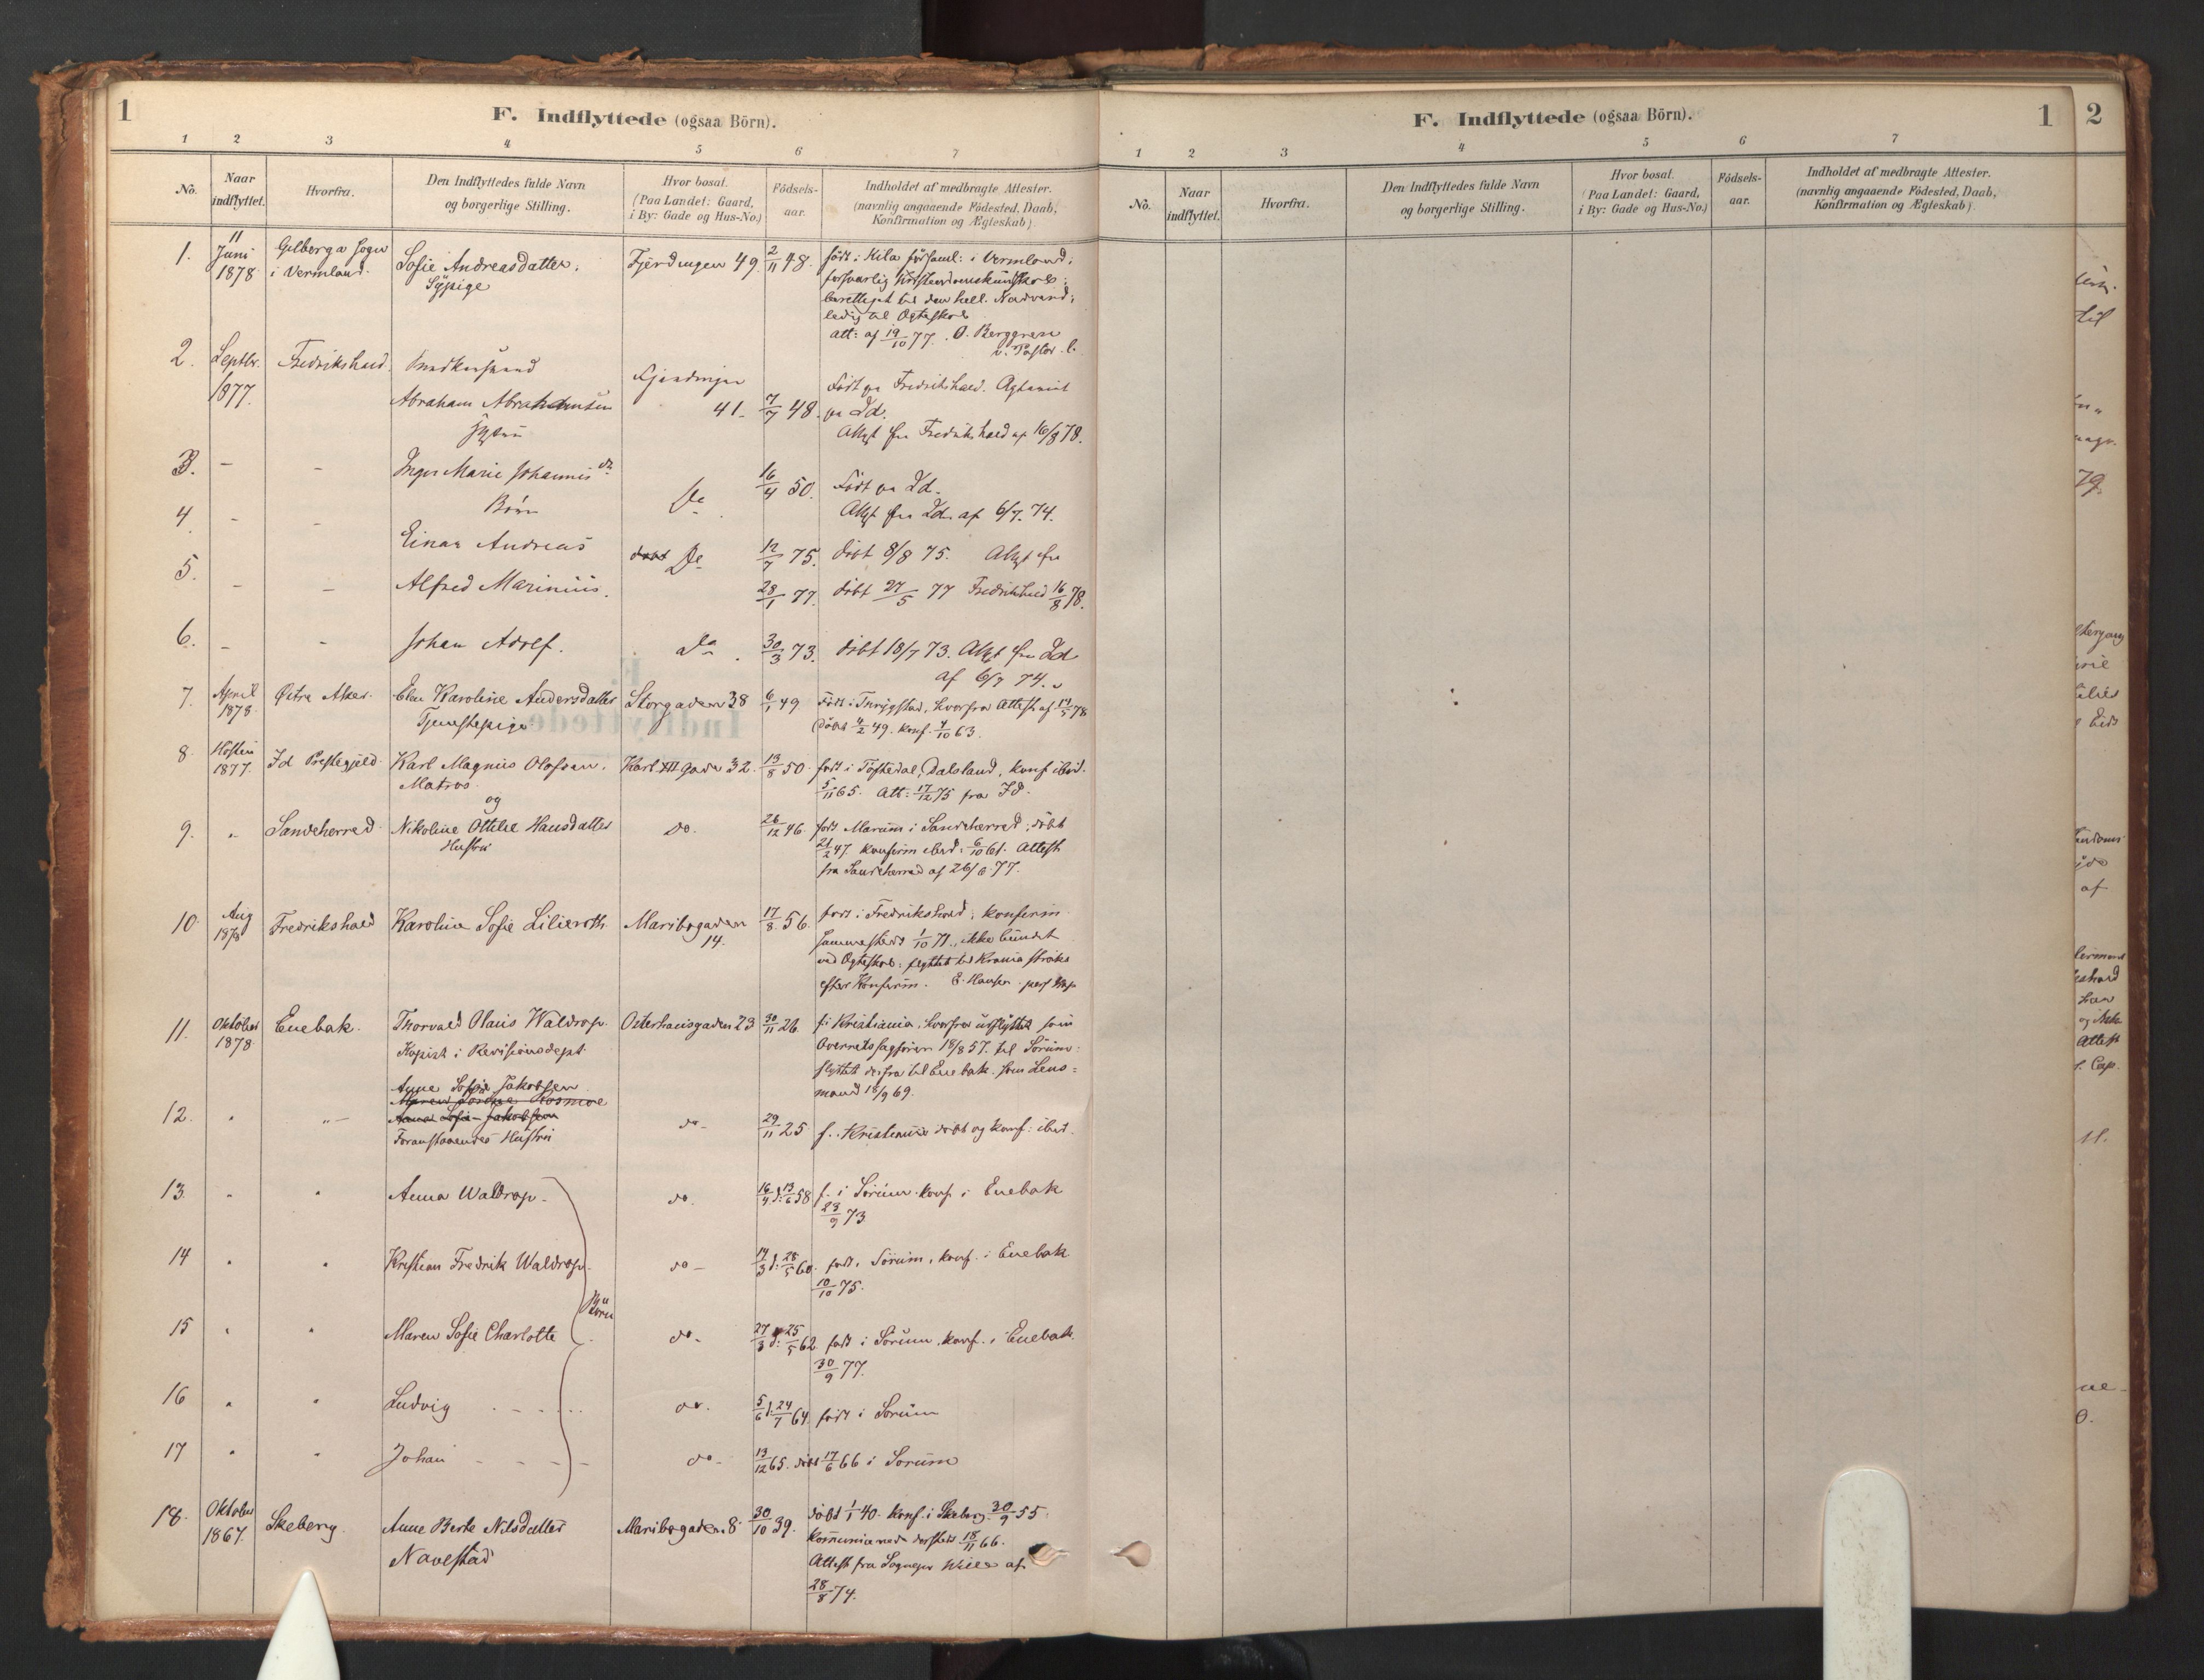 1
F. Indflyttede (ogsaa Börn).
1 2 3 4 5 6 7
No.
Naar indflyttet.
Hvorfra.
Den Indflyttedes fulde Navn og borgerlige Stilling.
Hvor bosat. (Paa Landet: Gaard, i By: Gade og Hus-No.)
Födsels-aar.
Indholdet af medbragte Attester. (navnlig angaaende Födested, Daab, Konfirmation og Ægteskab)
1. 11 Juni 1878 Gilberga Sogn i Vermland. Sofie Andreasdatter. Sypige Fjerdingen 49. 2/11 48.
född i Kila församl: i Vermland;
forsvarlig Kristendomskundskab;
berettiget til den hell. Nadverd;
ledig til Ægteskab
att: af 19/10 77. O. Berggren
v. Pastor. l.
2. Septbr. 1877. Fredrikshald. Abraham Abrahamsen Fjerdingen 41. 7/7 48.
Född paa Fredrikshald.
paa Id.
Attest fra Fredrikshald af 16/8 78.
3. - - Inger Marie Johannisdr. Do 16/4 50. Född paa Id.
Attest fra Id af 6/7. 74.
Börn
4 - - Einar Andreas Do 12/7 75. döbt 8/8 75. Attest fra
5. - - Alfred Marinius. 28/1 77. döbt 27/5 77 Fredrikshald 16/8 78.
6. - - Johan Adolf. do 30/3 73. döbt 18/7 73. Attest fra Id
af 6/7 74.
7. April 1878 Østre Aker. Elen Karoline Andersdatter Tjenestepige Storgaden 38 6/1 49
Född i Trøgstad, hvorfra Attest af 14/5 78
(döbt 4/2 49. Konf. 4/10 63.
8. Høsten 1877. Id Prestegjeld Karl Magnus Olofsen. Matros. Karl XII gade 32. 13/8 50.
född i Töftedal, Dalsland, konf. ibid.
5/11 65. Att: 17/12 75 fra Id.
og
9. " Sandeherred Nikoline Ottilie Hansdatter Hustru do. 26/12 46.
född Marum i Sandeherred; döbt
21/2 47 konfirm ibid. 6/10 61. Attest
fra Sandeherred af 26/6 77.
10. Aug 1878 Fredrikshald Karoline Sofie Lilieroth Maribogaden 14. 17/8 56.
född i Fredrikshald; konfirm
sammesteds 1/10 71., ikke bundet
ved Ægteskab: flyttet til Krania straks
efter Konfirm. E. Hansen.
11. Oktober 1878. Enebak. Thorvald Olaus Waldrop. Kopist i Revisionsdept. Osterhausgaden 23 30/11 26
f. i Kristiania, hvorfra udflyttet som
Overretssagfører 18/8 57. til Sörum.
flyttet derfra til Enebak som Lens-
mand 18/9 69.
Anne Sofie Jakobsen
12. " "- Foranstaaendes Hustru do- 29/11 25 f. i Kristiania döbt og konf: ibid.
13. " " Anna Waldrop. do. 16/4 d: 13/6 58 f. i Sörum. Konf. i Enebak
23/9 73.
14 " " Kristian Fredrik Waldrop. do- 14/3 d: 28/5 60. född i Sörum, konf. i Enebak
10/10 75.
Börn
15 " " Maren Sofie Charlotte do- 27/3 d: 25/5 62 född i Sörum. konf. i Enebak.
30/9 77.
16 " " Ludvig do. 5/6 d: 24/7 64. född i Sörum
17 " " Johan do- 13/12 65. döbt 17/6 66 i Sorum
18. Oktober 1867. Skeberg. Anne Berte Nilsdatter Navestad Maribogaden. 8. 30/10 39.
döbt 1/1 40. konf. i Skeberg 30/9 55.
Kommunicered dersteds 18/11 66.
Attest fra Sognepr Wille af
28/8 74.
F. Indflyttede (ogsaa Börn).
1
2
1 2 3 4 5 6 7
No.
Naar indflyttet.
Hvorfra.
Den Indflyttedes fulde Navn og borgerlige Stilling.
Hvor bosat. (Paa Landet: Gaard, i By: Gade og Hus-No.)
Födsels-aar.
Indholdet af medbragte Attester. (navnlig angaaende Födested, Daab, Konfirmation og Ægteskab).